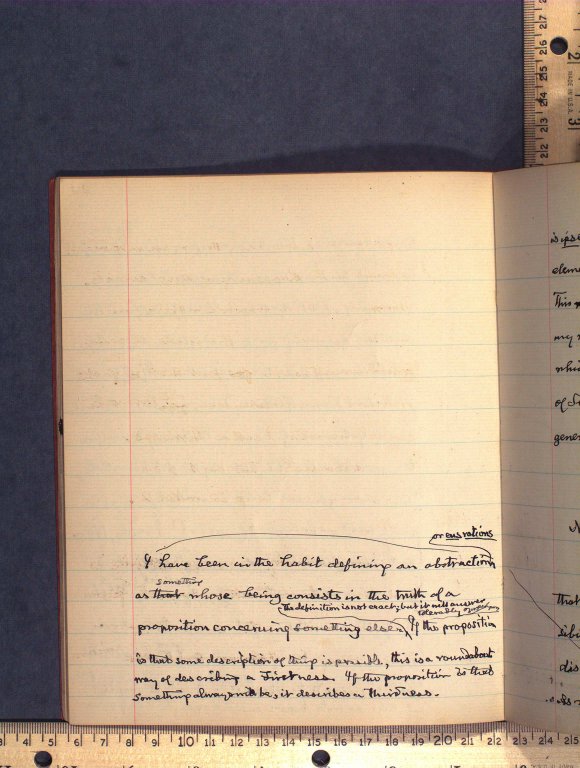 or ens rationis
I have been in the habit defining an abstraction
something
as that whose being consists in the truth of a
the definition is not exact; but it will answer
tolerably
proposition concerning something else. If the proposition
is that some description of thing is possible, this is a roundabout
way of describing a Firstness. If the proposition is that
something always will be, it describes a Thirdness.
is
eleme
This
my
whi
of Si
gener
N
that
dis
MADE IN U.S.A.
27
26
25
24
23
22
2
3
3 4 5 6 7 8 9 10 11 12 13 14 15 16 17 18 19 20 21 22 23 24 25